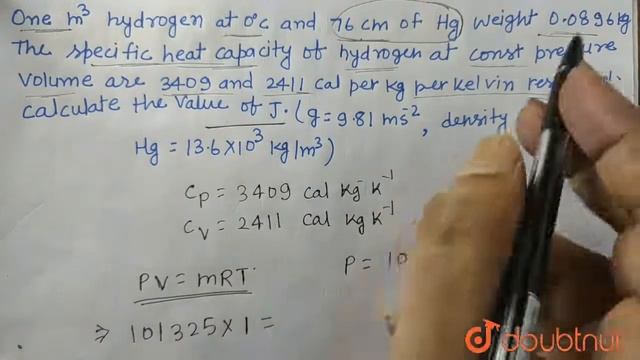 One m³ hydrogen at 0°c and 76 cm of Hg weight 0.0896kg
The specific heat capacity of hydrogen at const pressure
Volume are 3409 and 2411 cal per kg per kelvin
calculate the value of J. (g = 9.81 ms⁻², density
Hg = 13.6×10³ kg/m³)
Cp = 3409 cal kg⁻ k⁻¹
Cv = 2411 cal kg k⁻¹
PV = mRT
P = 10
⇒ 101325 × 1 =
doubtnut